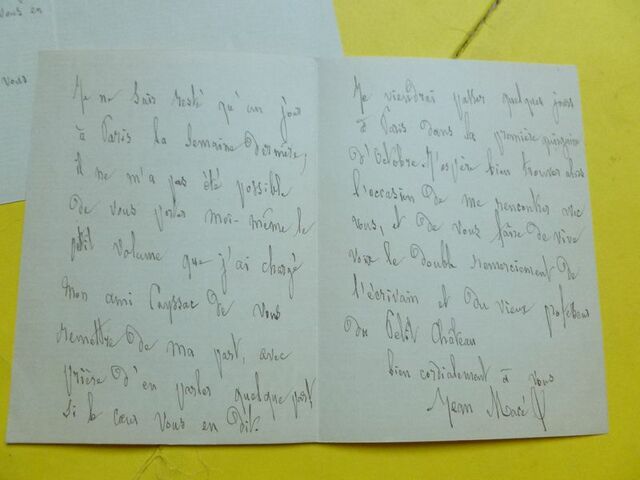 vous en
vous
Je ne suis resté qu'un jour
à Paris la semaine dernière,
il ne m'a pas été possible
de vous porter moi-même le
petit volume que j'ai chargé
mon ami Cayssac de vous
remettre de ma part, avec
prière d'en parler quelque part,
si le cœur vous en dit.
Je viendrai passer quelques jours
à Paris dans la première quinzaine
d'Octobre. J'espère bien trouver alors
l'occasion de me rencontrer avec
vous, et de vous faire de vive
voix le double remerciement de
l'écrivain et du vieux professeur
du Petit Château
bien cordialement à vous
Jean Macé